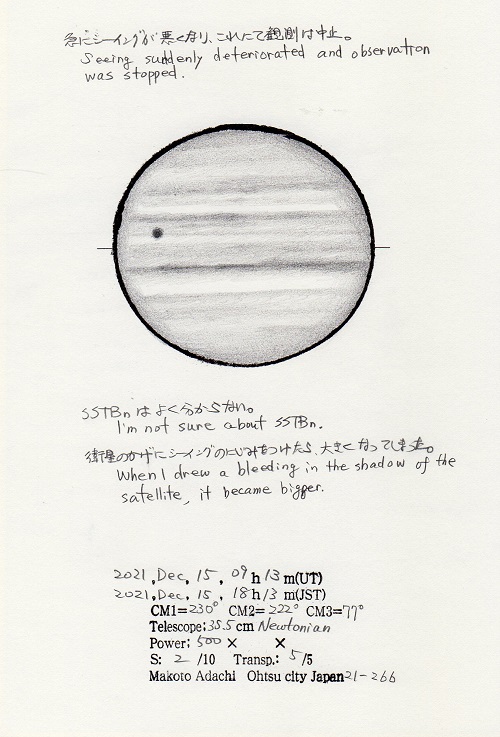 急にシーイングが悪くなり、これにて観測は中止。
Seeing suddenly deteriorated and observation
was stopped.
SSTBnはよく分からない。
I'm not sure about SSTBn.
衛星のカゲにシーイングのにじみをつけたら、大きくなってしまった。
When I drew a bleeding in the shadow of the
satellite, it became bigger.
2021, Dec, 15, 09 h 13 m(UT)
2021, Dec, 15, 18 h 13 m(JST)
CM1=230° CM2=222° CM3=77°
Telescope; 35.5 cm Newtonian
Power; 500 × ×
S: 2 /10 Transp.: 5 /5
Makoto Adachi Ohtsu city Japan 21-266